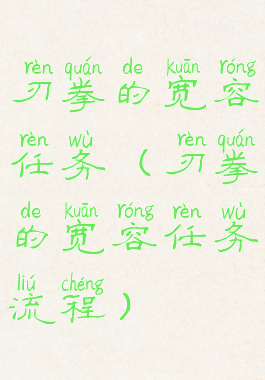 rèn quán de kuān róng
刃拳的宽容
rèn wù rèn quán
任务（刃拳
de kuān róng rèn wù
的宽容任务
liú chéng
流程）